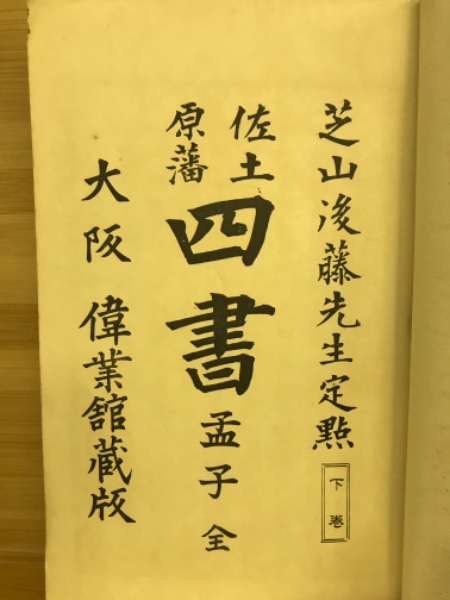 芝山後藤先生定點
下巻
佐土
原藩
四書
孟子
全
大阪 偉業館藏版